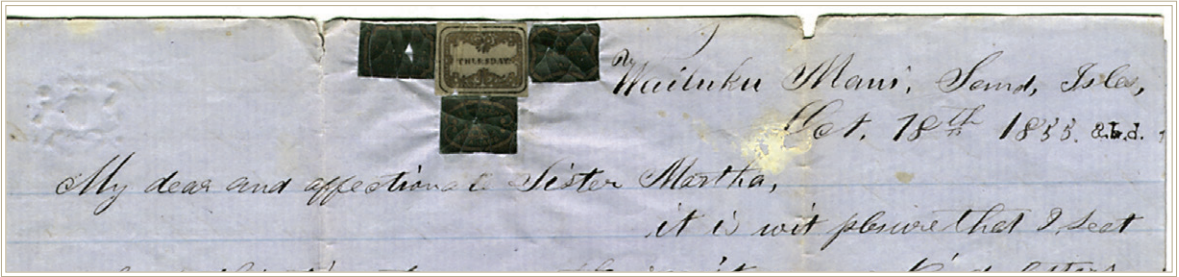 THURSDAY
Wailuku Maui, Sand, Isles,
Oct. 18th 1855. &.b.d.
My dear and affectionate Sister Martha,
it is wit plesure that I seat